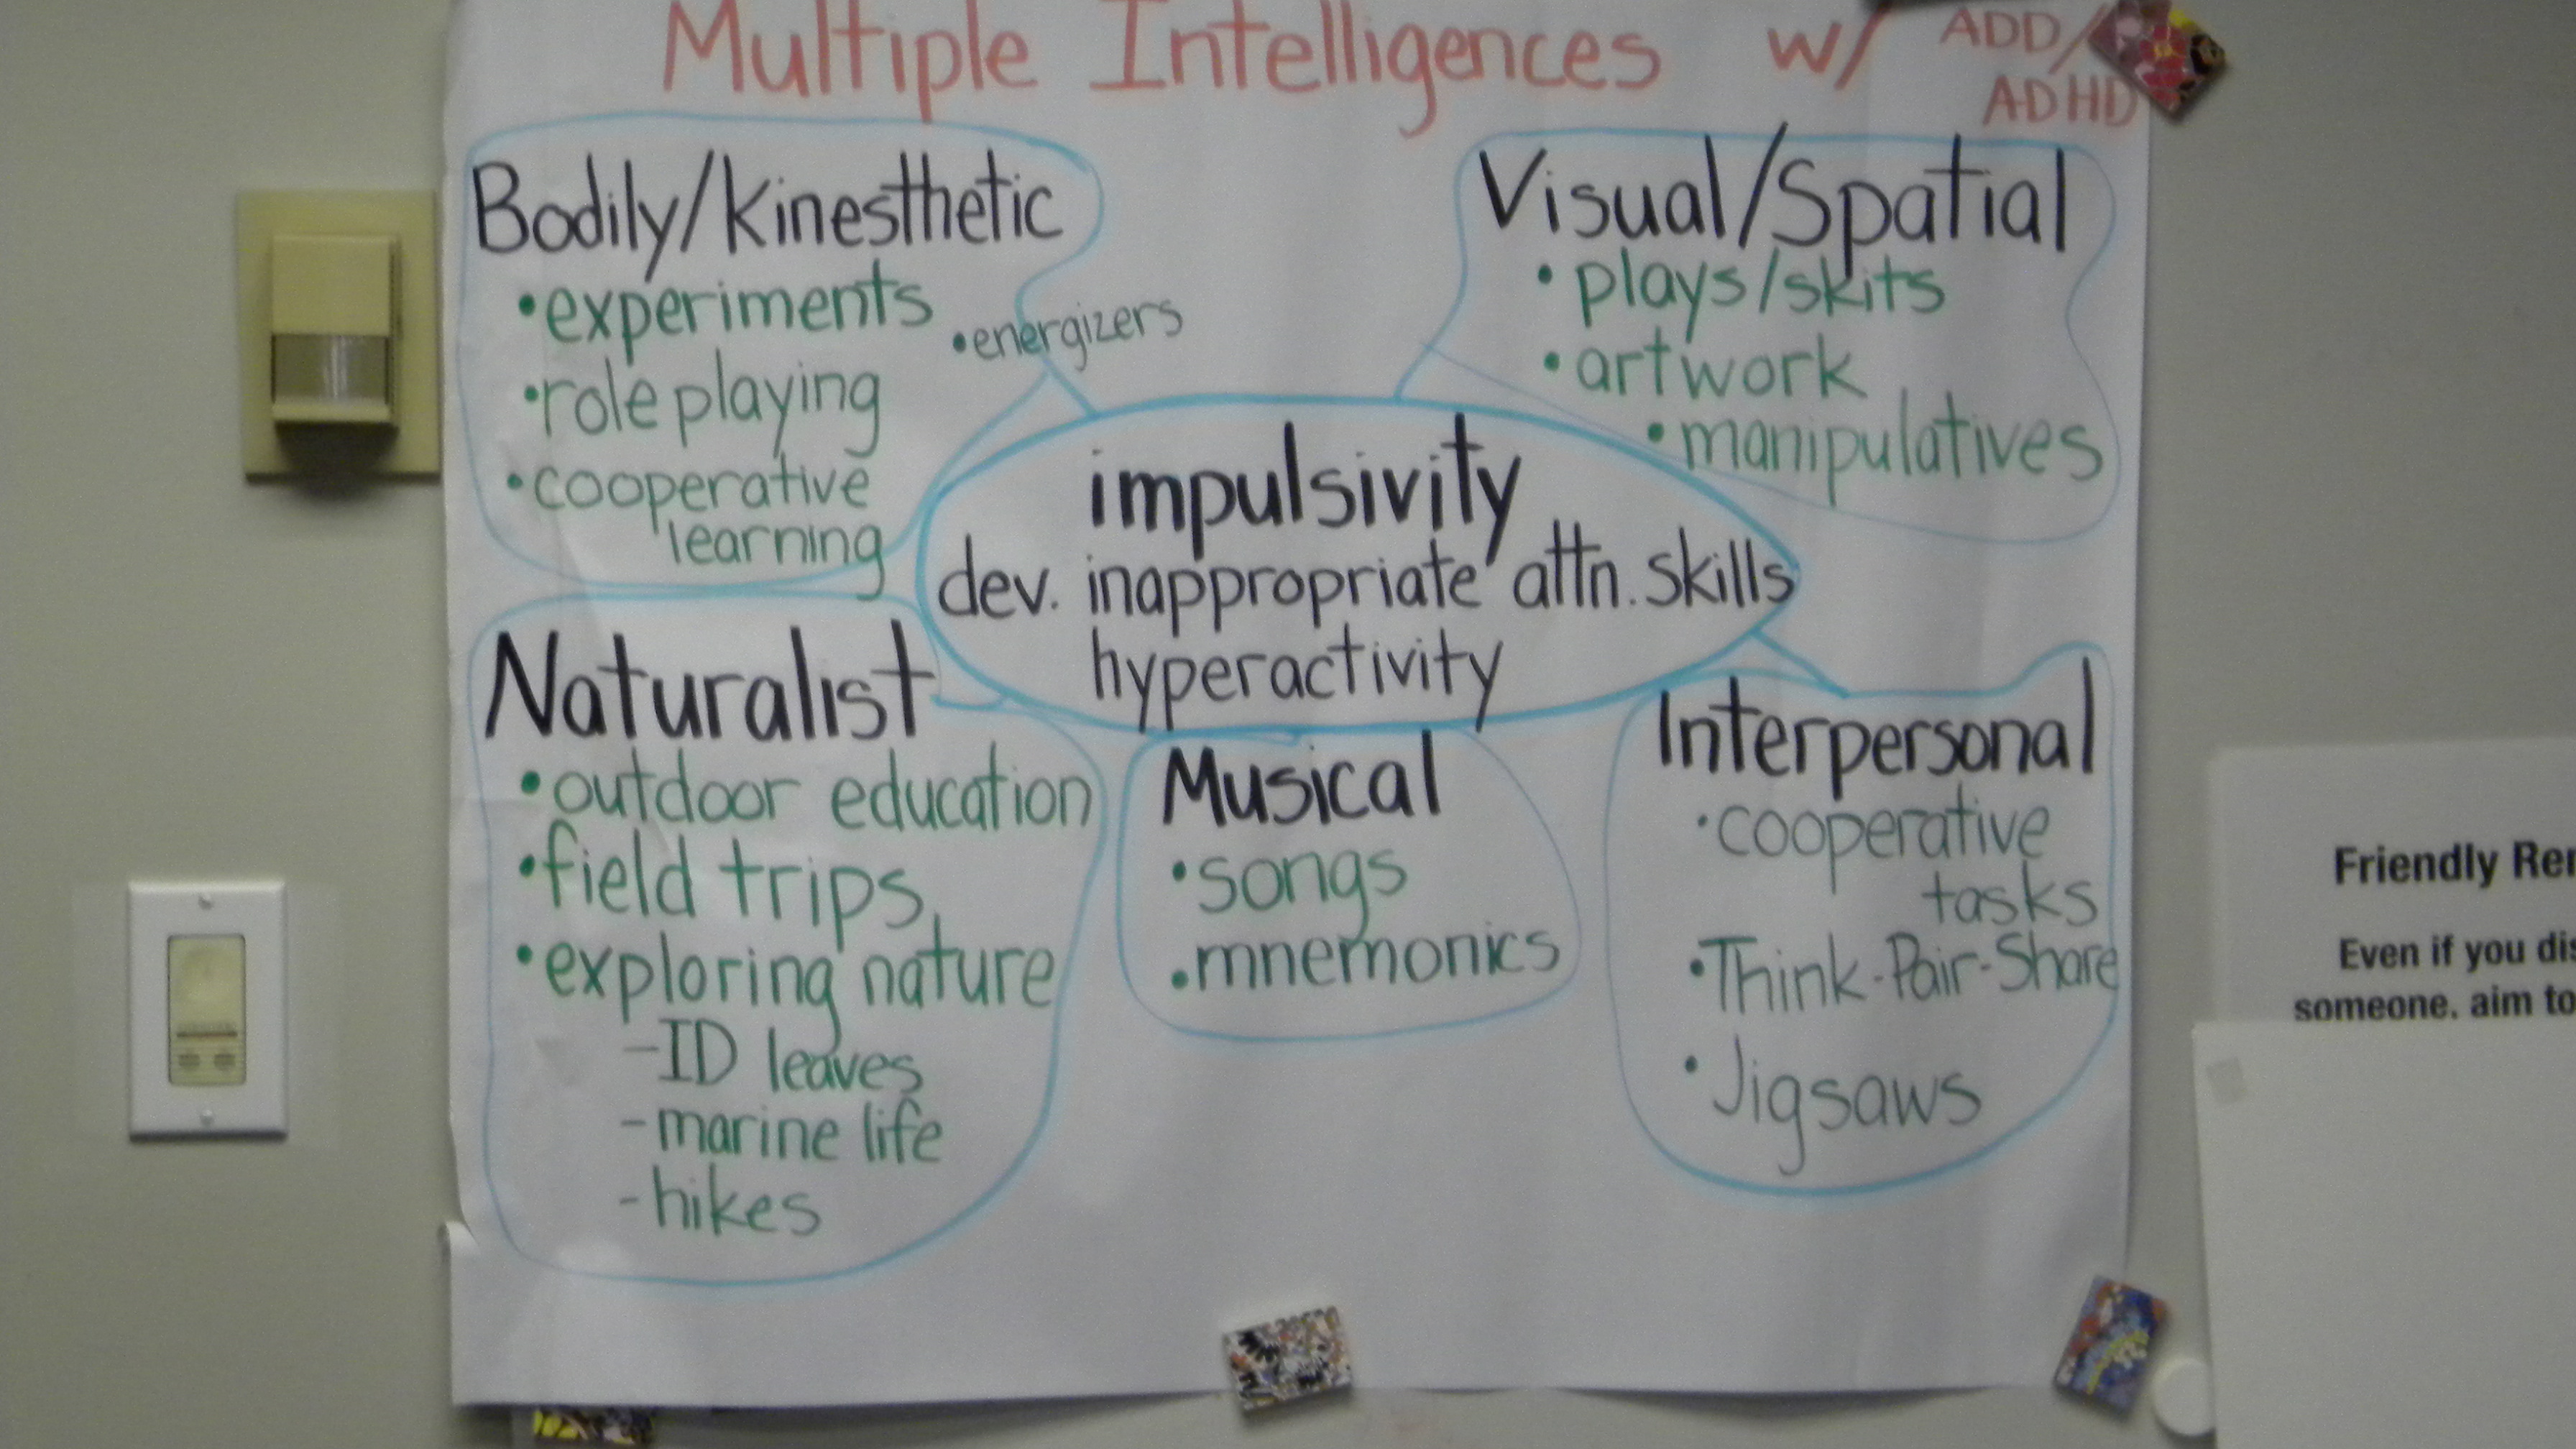 Multiple Intelligences w/ ADD/
ADHD
Bodily/Kinesthetic
•experiments
•energizers
•role playing
•cooperative
learning
Visual/Spatial
•plays/skits
•artwork
•manipulatives
impulsivity
dev. inappropriate attn. skills
hyperactivity
Naturalist
•outdoor education
•field trips
•exploring nature
-ID leaves
-marine life
-hikes
Musical
•songs
•mnemonics
Interpersonal
•cooperative
tasks
•Think-Pair-Share
•Jigsaws
Friendly
Even if you
someone. aim to